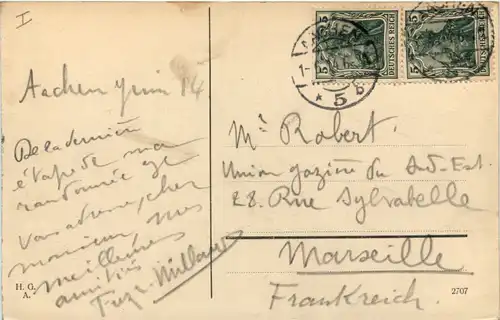 Aachen juin 14
De la dernière
étape de ma
randonnée je
vous adresse, cher
monsieur, mes
meilleures
amitiés
H. G.
A.
5 5
DEUTSCHES REICH
5 5
DEUTSCHES REICH
AACHEN
* 5 b
Mr Robert.
Union gazière du Sud-Est.
28. Rue Sylvabelle
Marseille
Frankreich.
2707